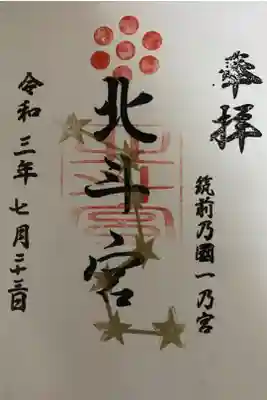 奉拝
筑前乃國一乃宮
北斗宮
令和三年七月二十三日